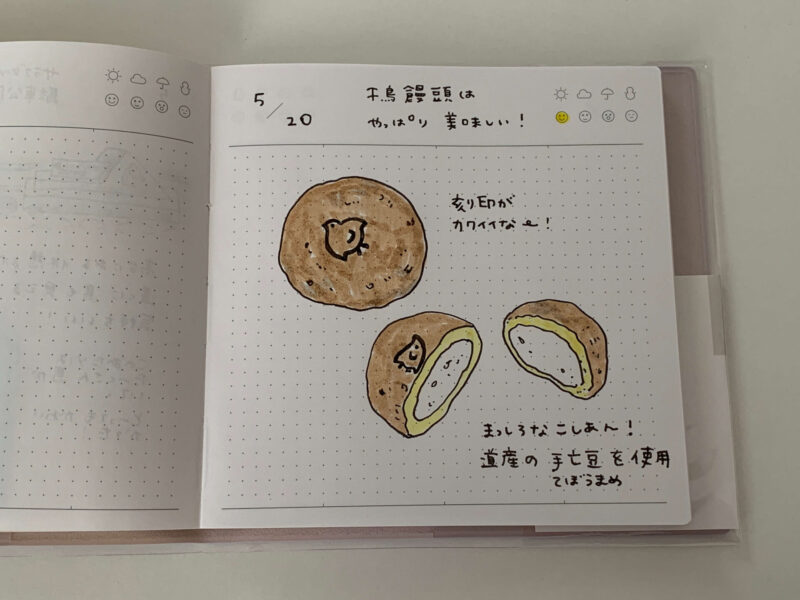 5/20
千鳥饅頭は
やっぱり 美味しい！
刻印が
カワイイな〜！
まっしろな こしあん！
道産の 手亡豆を使用
てぼうまめ